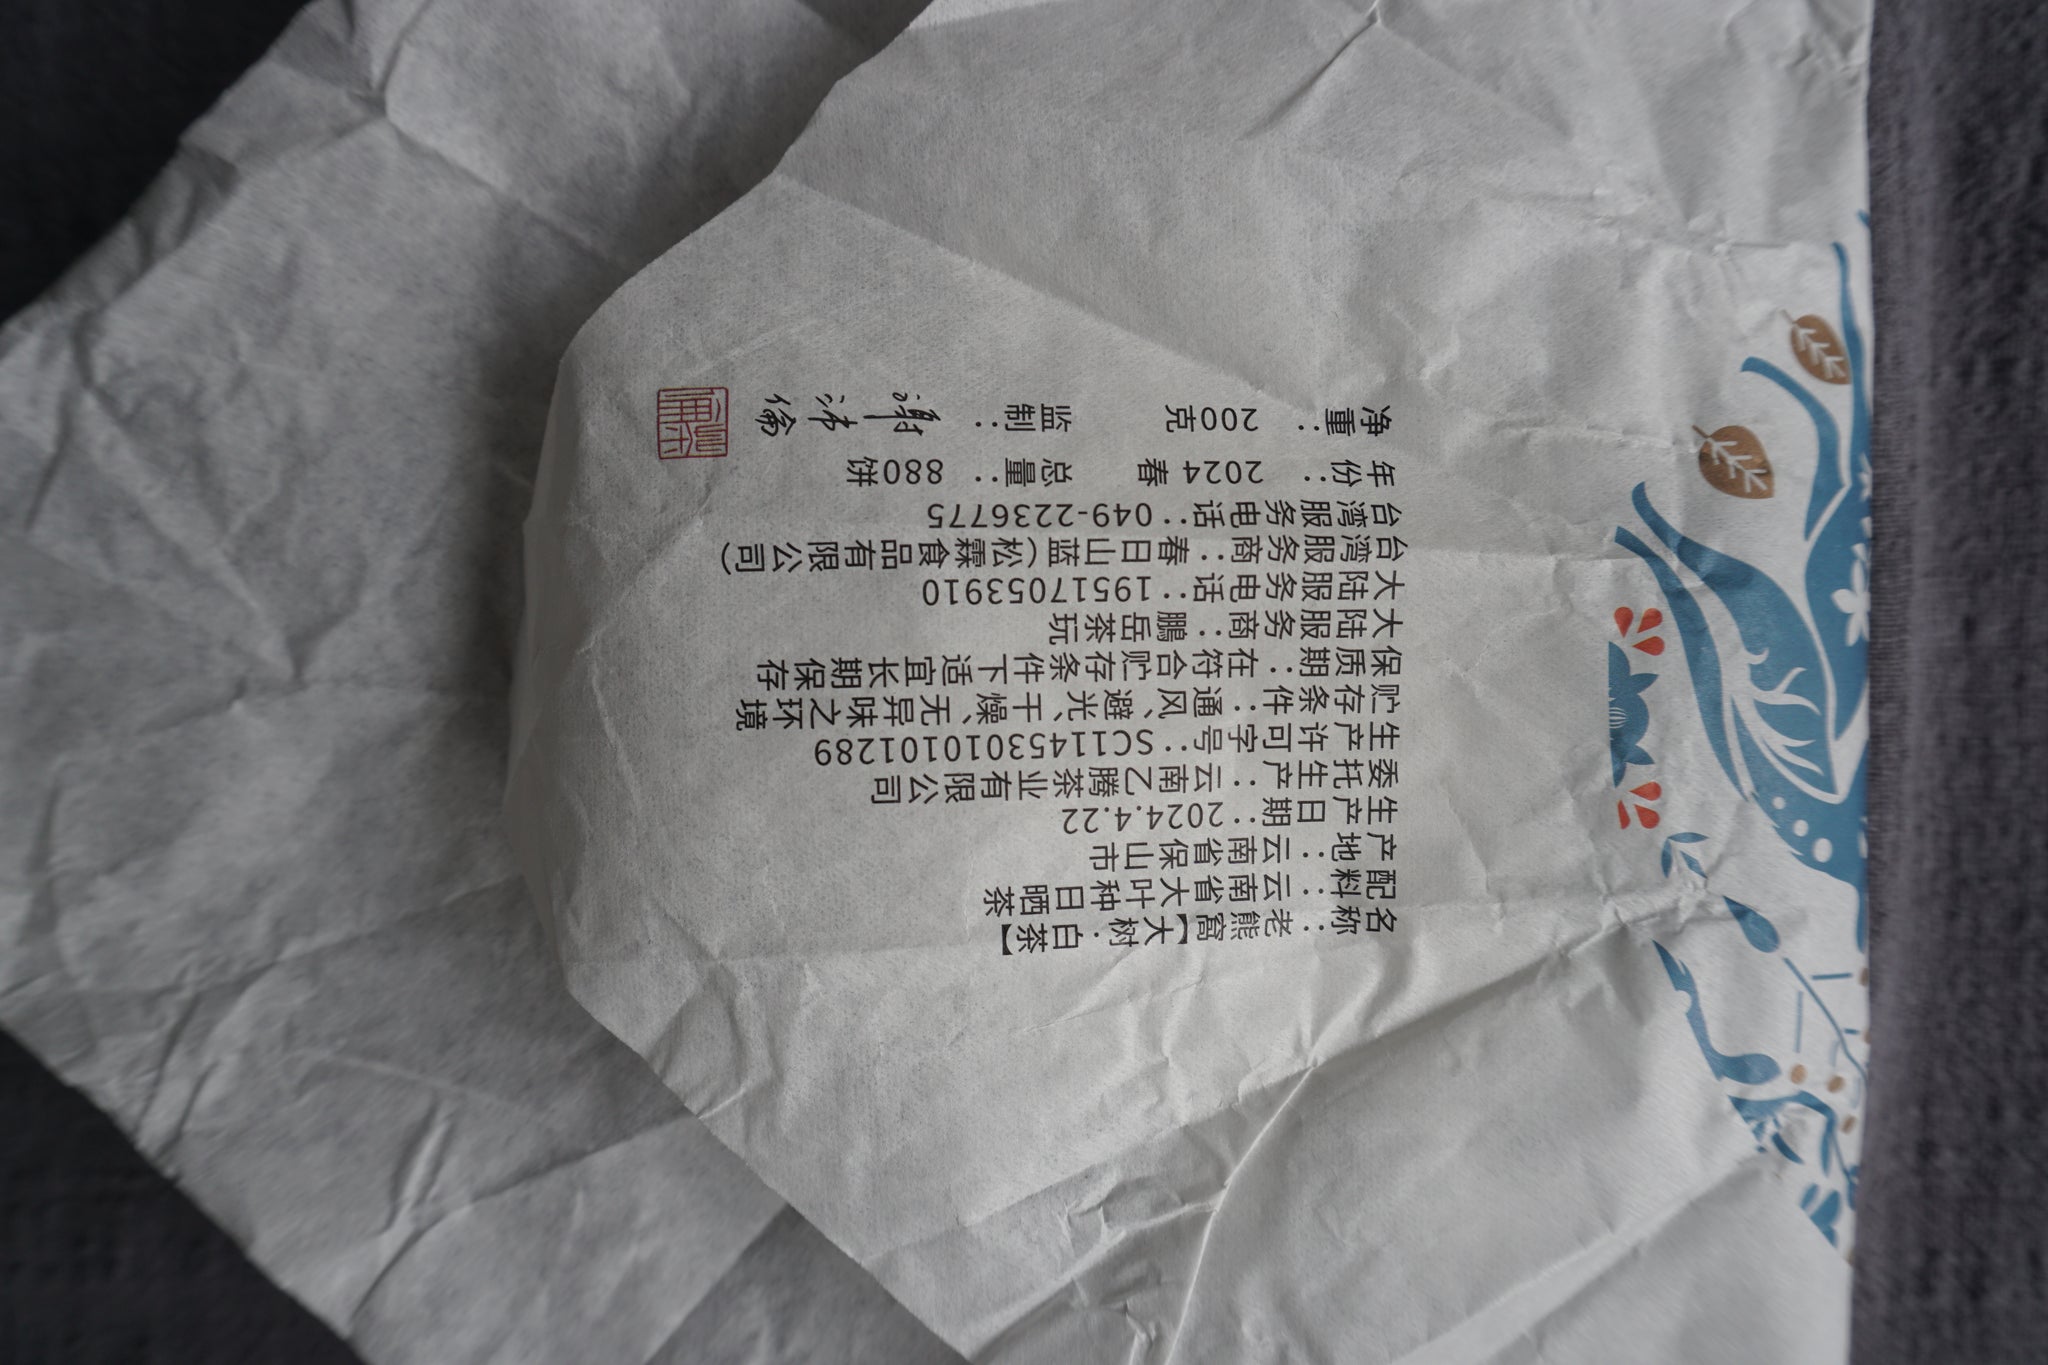 名称：老熊窝【大树·白茶】
配料：云南省大叶种日晒茶
产地：云南省保山市
生产日期：2024.4.22
委托生产：云南乙腾茶业有限公司
生产许可字号：SC11453010101289
贮存条件：通风、避光、干燥、无异味之环境
保质期：在符合贮存条件下适宜长期保存
大陆服务商：鹏岳茶玩
大陆服务电话：19517053910
台湾服务商：春日山蓝(松霖食品有限公司)
台湾服务电话：049-2236775
年份：2024 春 总量：880饼
净重：200克 监制：謝沛倫